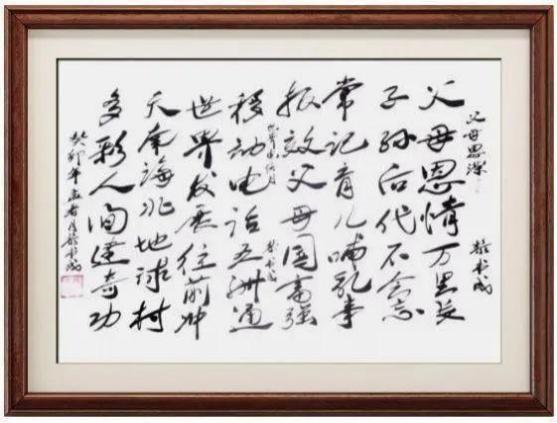 父母恩深
父母恩情万里长
书成
子孙后代不会忘
常记育儿哺乳事
报效父母国富强
书成
移动电话五洲通
世界发展往前冲
天南海北地球村
多彩人间建奇功
癸卯年孟春月 书成